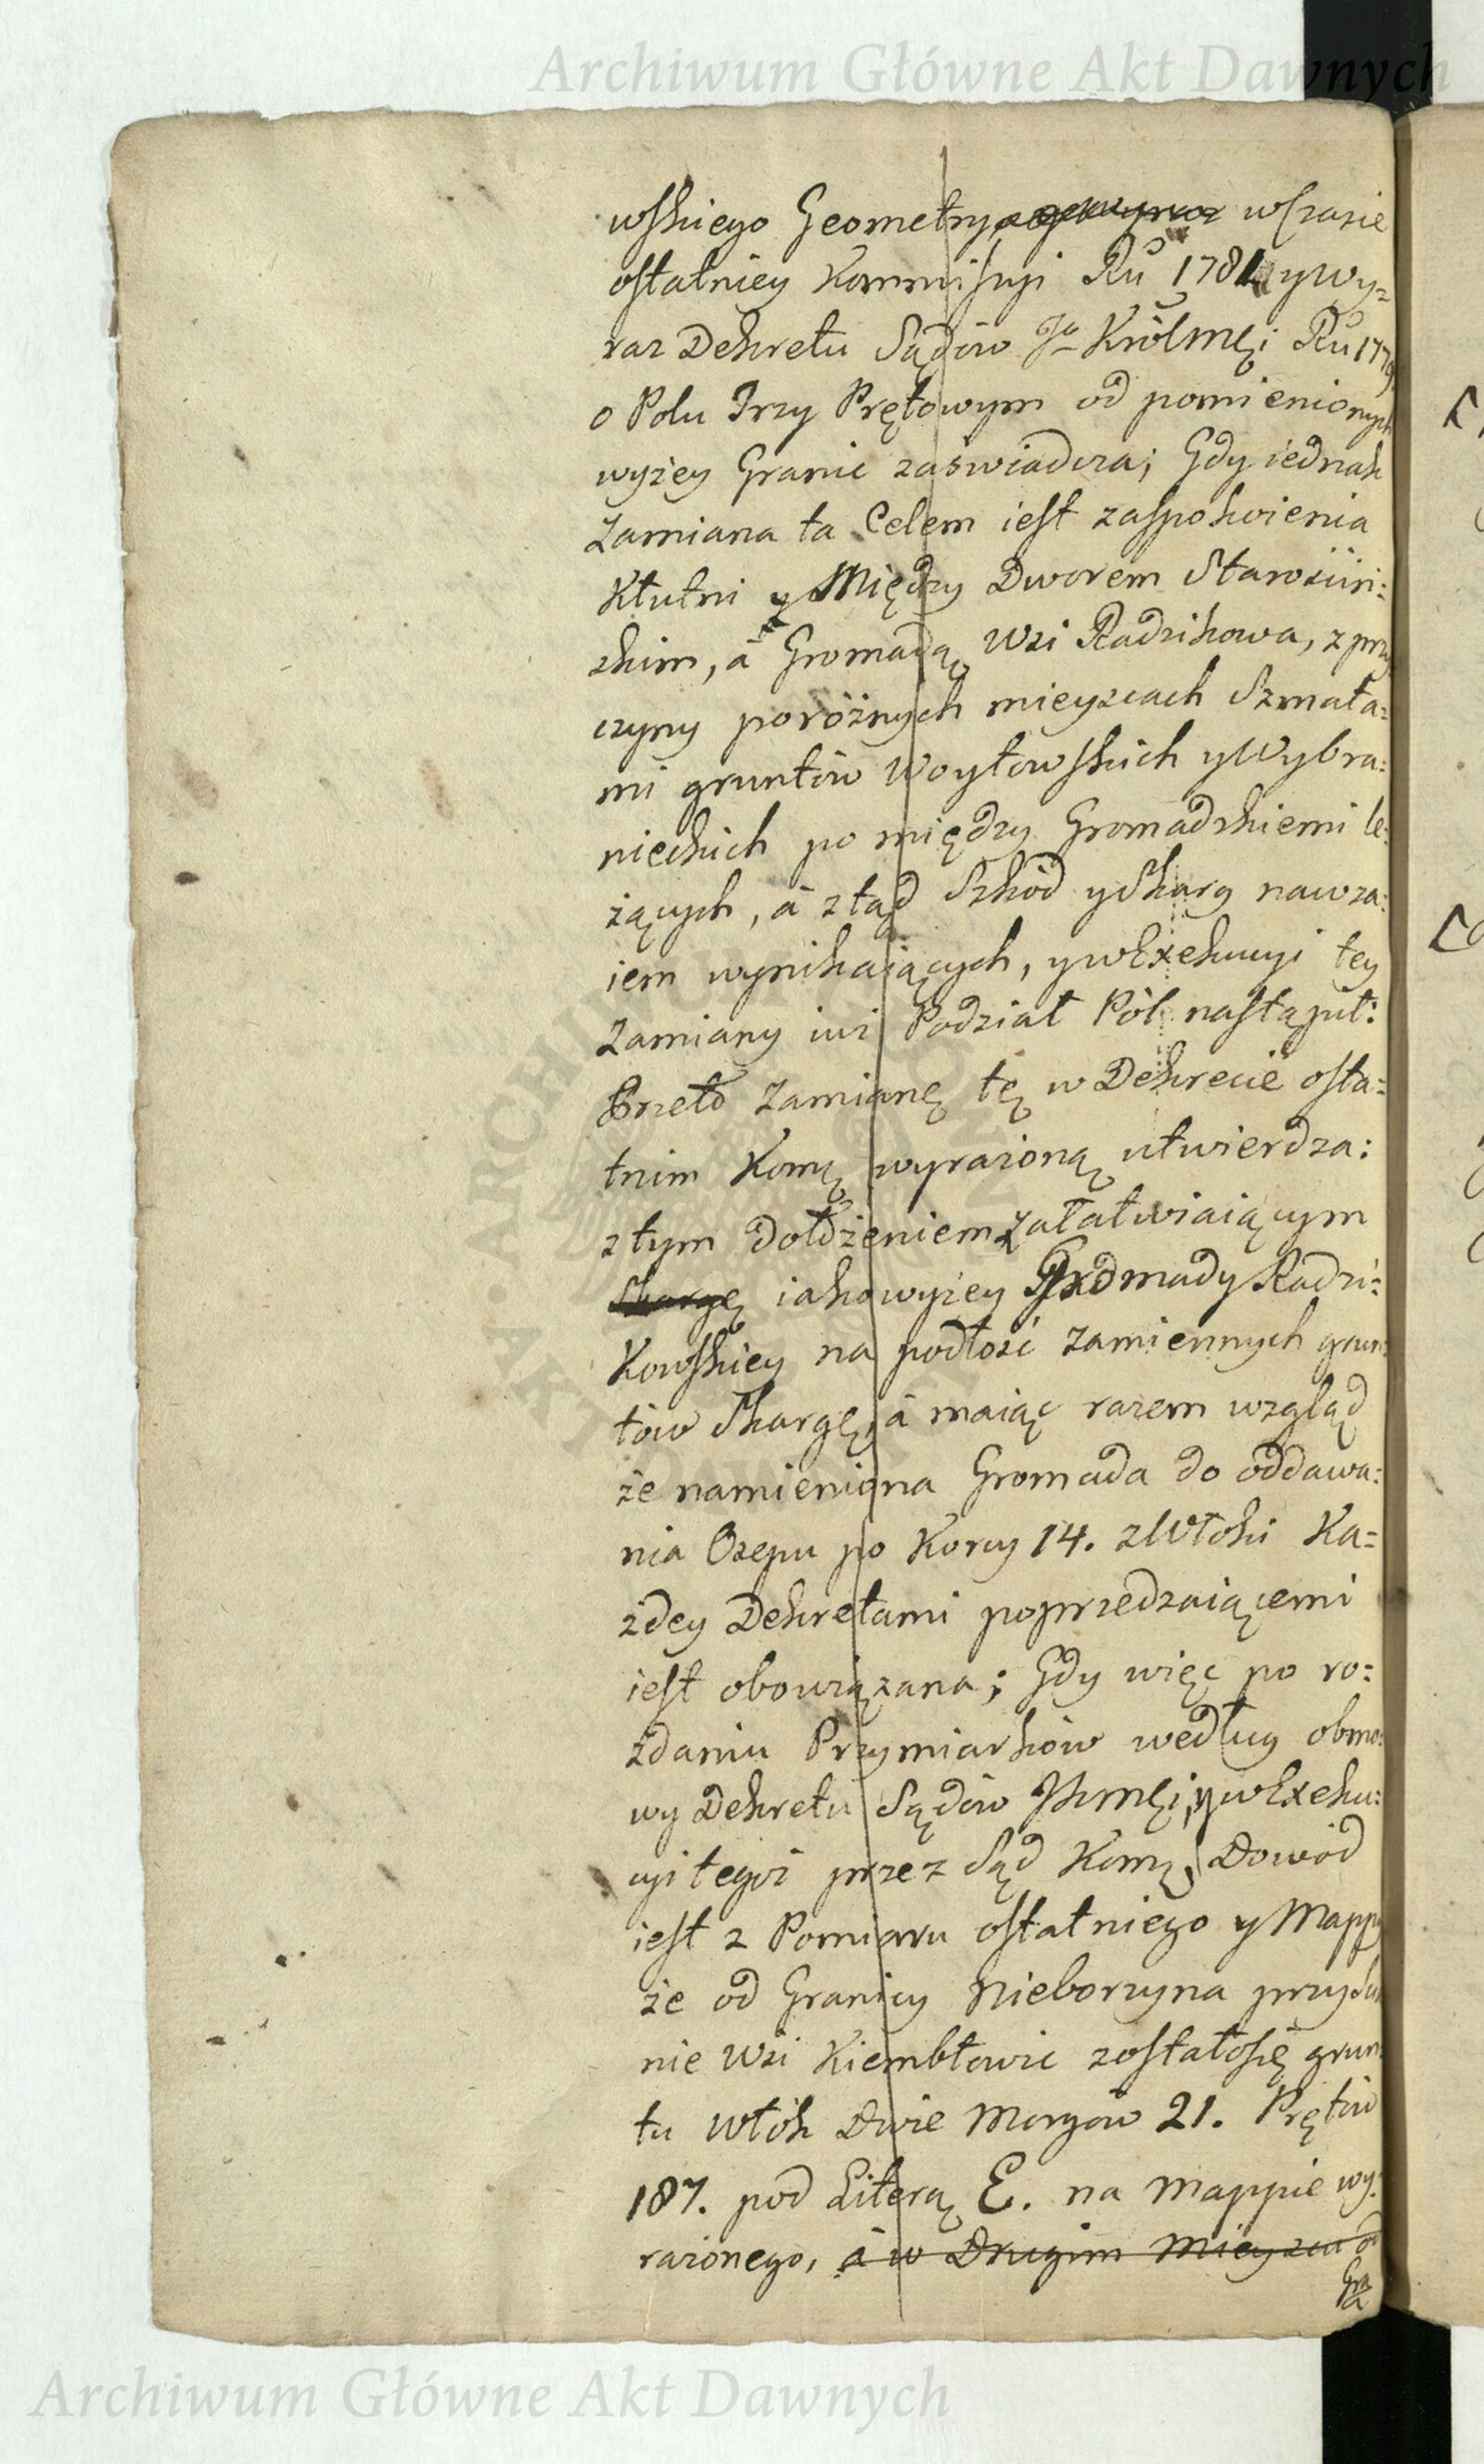 Archiwum Główne Akt Dawnych
wskiego Geometry w Czasie
ostatniey Kommissyi Ru 1781 y wy=
raz Dekretu Sądów Jo KrólMęi Ru 1779
o Polu Trzy Prętowym od pomienionych
wyżey Granic zaswiadcza; Gdy iednak
Zamiana ta Celem iest zaspokoienia
Kłutni y Między Dworem Staroscin:
skim, á Gromadą Wsi Radzikowa, z przy
czyny poróżnych mieyscach Szmata=
mi gruntów Woytowskich y Wybra:
nieckich po między Gromadzkiemi le:
żących, á ztąd Szkód y Skarg nawza:
iem wynikaiących, y w Exekucyi tey
Zamiany iuż Podział Pól nastąpił:
Przeto Zamianę tę w Dekrecie osta=
tnim Komę wyrażoną utwierdza:
z tym dołożeniem załatwiaiącym
Skargę iako wyżey Gromady Radzi=
Kowskiey na podłość zamiennych grun:
tów Skargę, á maiąc razem wzgląd
że namieniona Gromada do oddawa:
nia Osepu po Korcy 14. z Włoki Ka=
żdey Dekretami poprzedzaiącemi
iest obowiązana; Gdy więc po ro:
zdaniu Przymiarków według obmo:
wy Dekretu Sądów JKMęi, y w Exeku:
cyi tegoż przez Sąd Komę, Dowód
iest z Pomiaru ostatniego y Mappy
że od Granicy Nieborzyna
nie Wsi Kiembłowic zostało się grun
tu Włók Dwie Morgów 21. Prętów
187. pod Literą E. na Mappie wy:
rażonego, á w Drugim Mieyscu od
Gra
Archiwum Główne Akt Dawnych